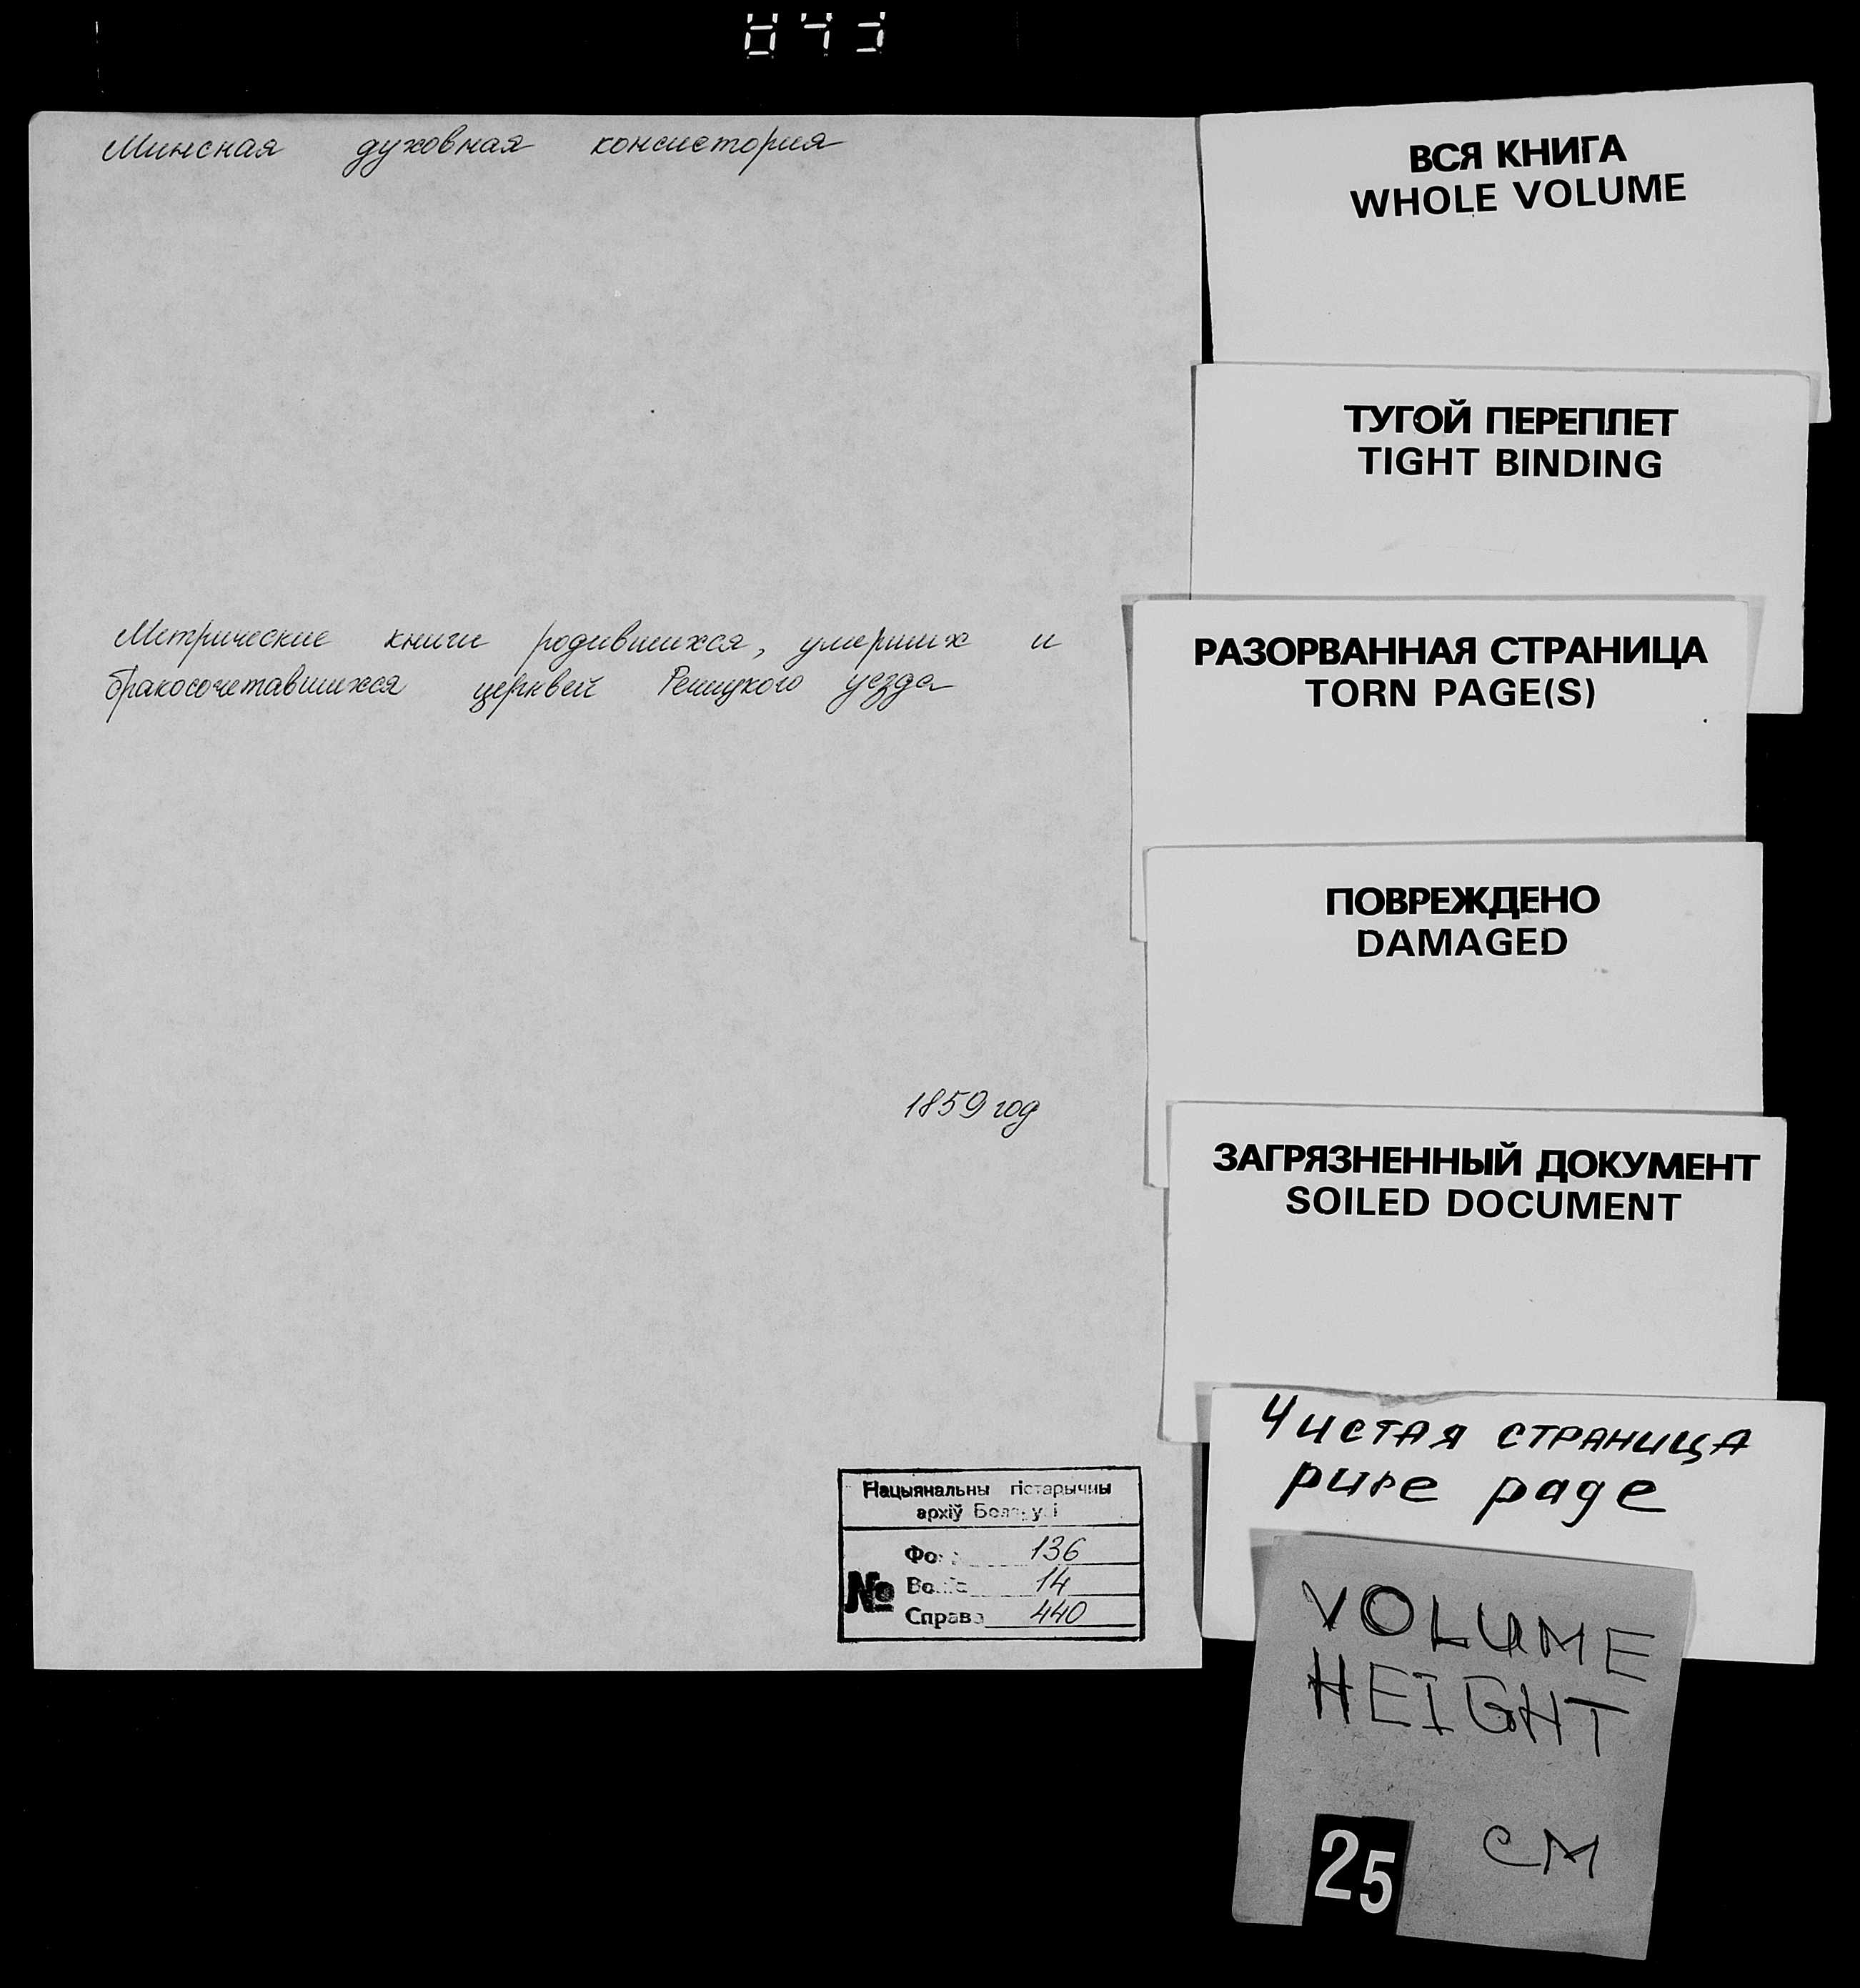 Минская духовная консистория
Метрические книги родившихся, умерших и
бракосочетавшихся церквей Речицкого уезда
1859 год
Нацыянальны гістарычны
архіў Беларусі
№
Фонд 136
Вопіс 14
Справа 440
ВСЯ КНИГА
WHOLE VOLUME
ТУГОЙ ПЕРЕПЛЕТ
TIGHT BINDING
РАЗОРВАННАЯ СТРАНИЦА
TORN PAGE(S)
ПОВРЕЖДЕНО
DAMAGED
ЗАГРЯЗНЕННЫЙ ДОКУМЕНТ
SOILED DOCUMENT
Чистая страница
pure page
VOLUME
HEIGHT
25 CM